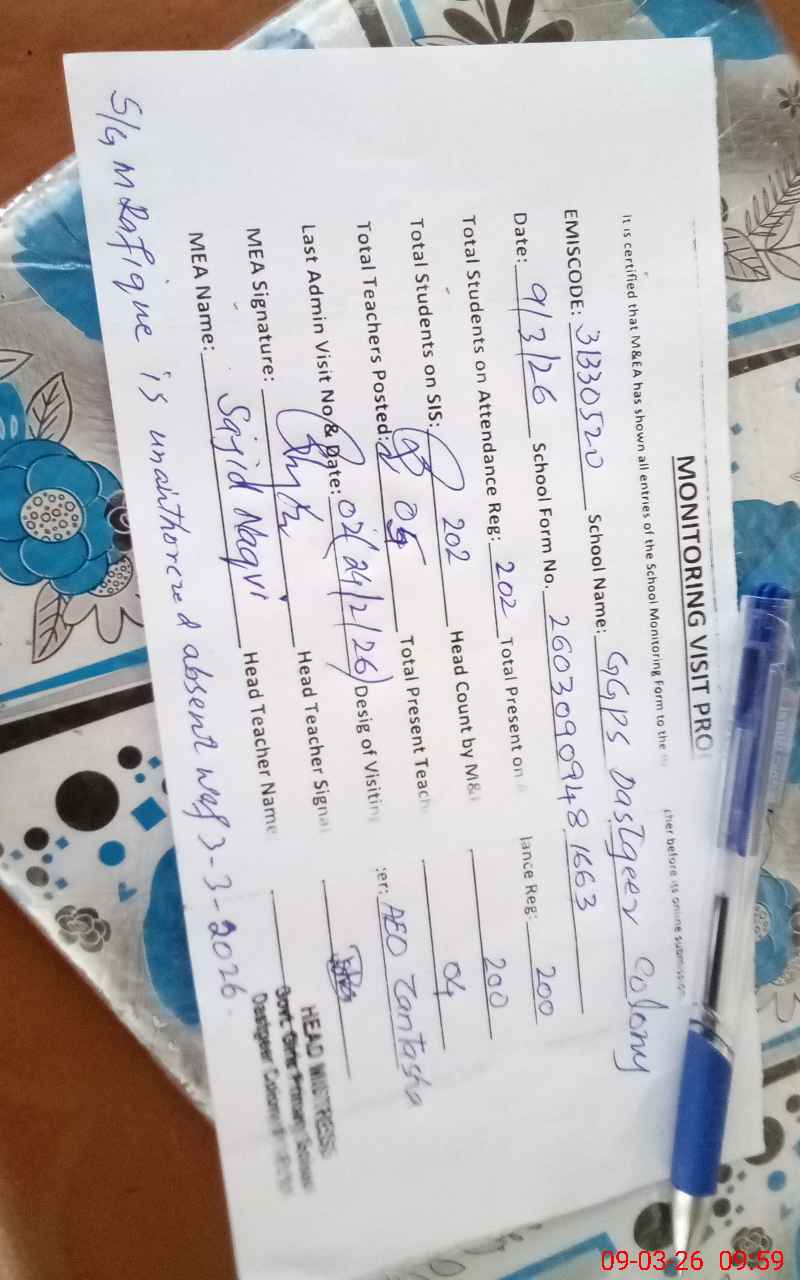 MONITORING VISIT PRO
It is certified that M&EA has shown all entries of the School Monitoring Form to the cher before its online submission
EMISCODE: 31330520 School Name: GGPS Dastgeer Colony
Date: 9/3/26 School Form No. 260309094813 1663
Total Students on Attendance Reg: 202 Total Present on lance Reg: 200
Total Students on SIS: 202 Head Count by M& 200
Total Teachers Posted: 05 Total Present Teach 04
Last Admin Visit No & Date: 02 (24/2/26) Desig of Visiting er: AEO
MEA Signature: Head Teacher Signa
MEA Name: Sajid Naqvi Head Teacher Name
HEAD MISTRESS
Govt. Girls Primary School
Dastgeer Colony
S/G M Rafique is unauthorized absent wef 3-3-2026.
09-03-26 09:59